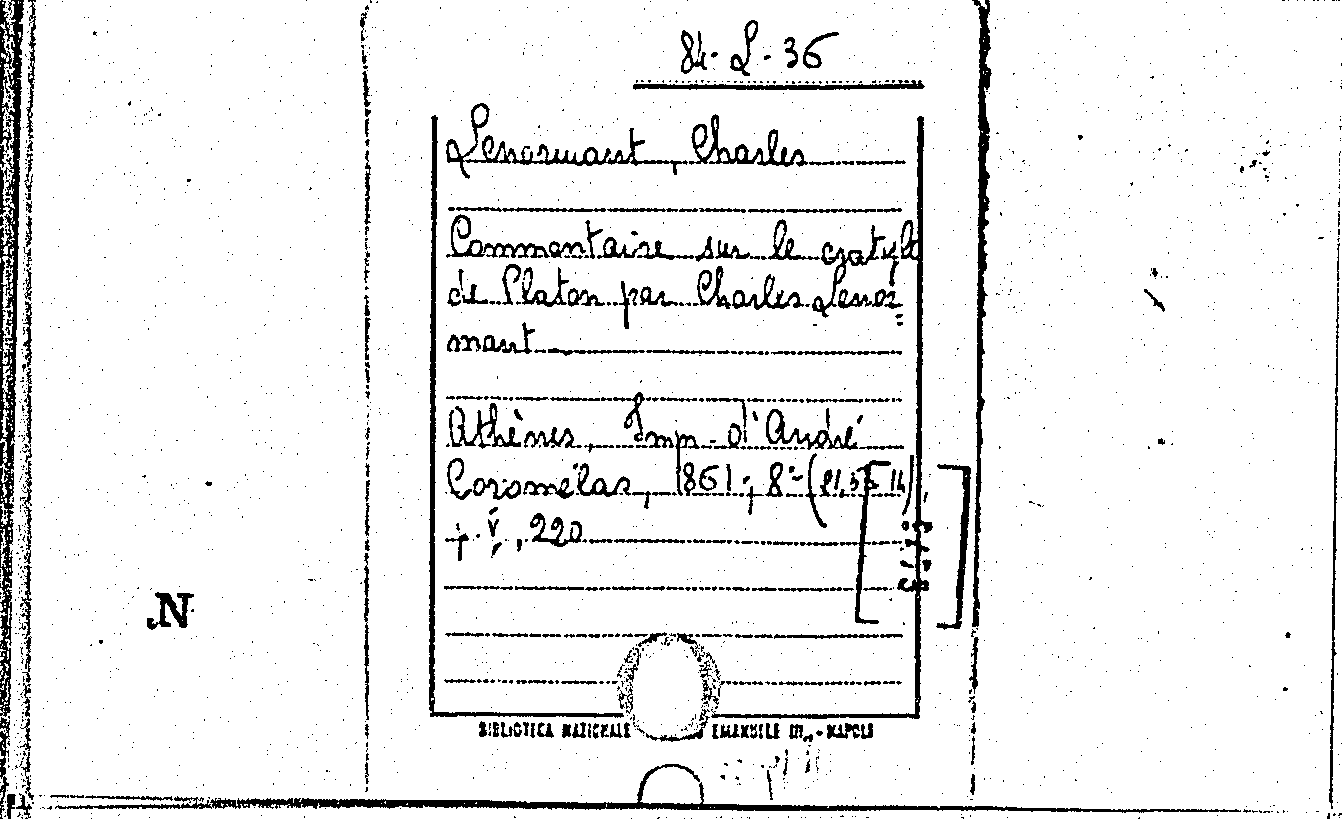 84-L-36
Lenormant, Charles
Commentaire sur le cratyle
de Platon par Charles Lenor=
mant
Athènes, Imp. d'André
Coromélas, 1861; 8° (21,5
p. V, 220
N.
BIBLIOTECA NAZIONALE EMANUELE III - NAPOLI